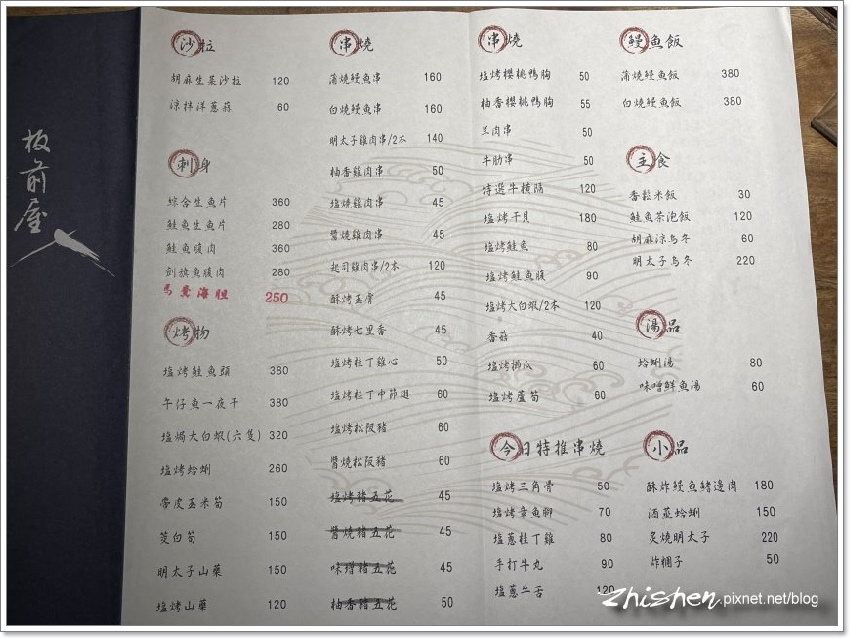 板前屋
沙拉
胡麻生菜沙拉 120
涼拌洋蔥蒜 60
刺身
綜合生魚片 360
鮭魚生魚片 280
鮭魚腹肉 360
劍旗魚腹肉 280
馬糞海胆 250
烤物
塩烤鮭魚頭 380
午仔魚一夜干 380
塩焗大白蝦(六隻) 320
塩烤蛤蜊 260
帶皮玉米筍 150
茭白筍 150
明太子山藥 150
塩烤山藥 120
串燒
蒲燒鰻魚串 160
白燒鰻魚串 160
明太子雞肉串/2本 140
柚香雞肉串 50
塩燒雞肉串 45
醬燒雞肉串 45
起司雞肉串/2本 120
酥烤玉膚 45
酥烤七里香 45
塩烤桂丁雞心 50
塩烤桂丁中節翅 60
塩烤松阪豬 60
醬燒松阪豬 60
塩烤豬五花 45
醬燒豬五花 45
味增豬五花 45
柚香豬五花 50
串燒
塩烤櫻桃鴨胸 50
柚香櫻桃鴨胸 55
羊肉串 50
牛肋串 50
特選牛橫隔 120
塩烤干貝 180
塩烤鮭魚 80
塩烤鮭魚腹 90
塩烤大白蝦/2本 120
香菇 40
塩烤櫛瓜 60
塩烤蘆筍 60
今日特推串燒
塩烤三角骨 50
塩烤章魚腳 70
塩蔥桂丁雞 80
手打牛丸 90
塩蔥牛舌 120
鰻魚飯
蒲燒鰻魚飯 380
白燒鰻魚飯 380
主食
香鬆米飯 30
鮭魚茶泡飯 120
胡麻涼烏冬 60
明太子烏冬 220
湯品
蛤蜊湯 80
味噌鮮魚湯 60
小品
酥炸鰻魚鰭邊肉 180
酒蒸蛤蜊 150
炙燒明太子 220
炸糰子 50
zhishen.pixnet.net/blog